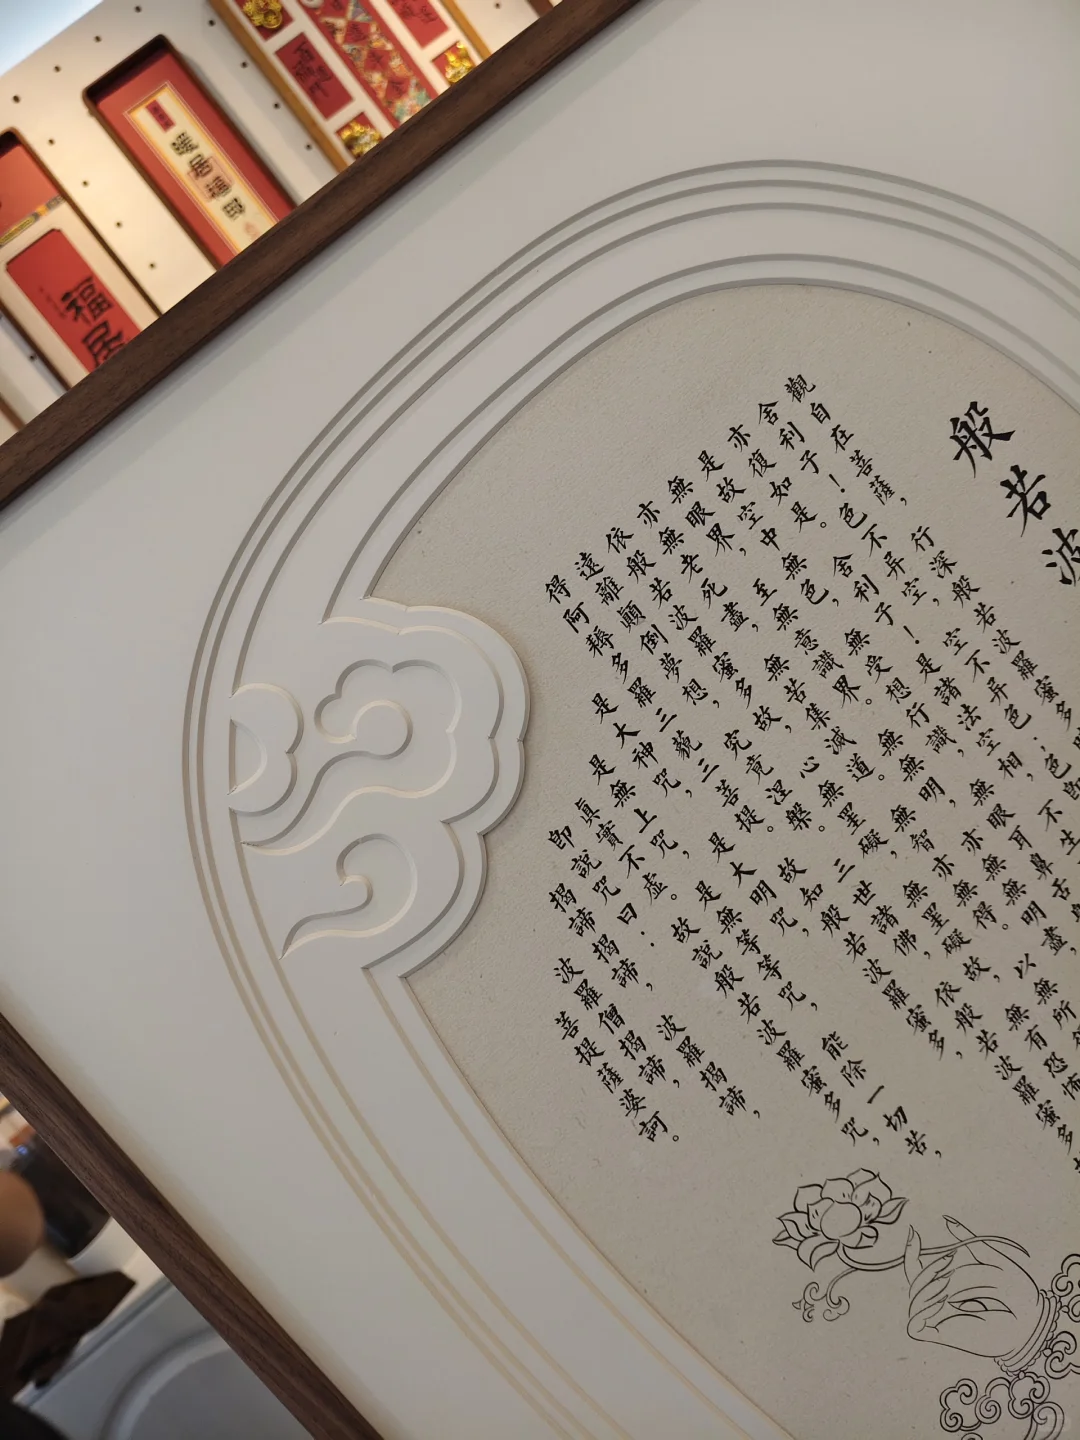 般若波
觀自在菩薩，行深般若波羅蜜多
舍利子！色不异空，空不异色；色即
亦復如是。舍利子！是諸法空相，不生
是故空中無色，無受想行識，無眼耳鼻舌身
無眼界，至無意識界。無無明，亦無無明盡，
亦無老死盡，無苦集滅道。無智亦無得。以無所得
依般若波羅蜜多故，心無罣礙，無罣礙故，無有恐怖
遠離顛倒夢想，究竟涅槃。三世諸佛，依般若波羅蜜多
得阿耨多羅三藐三菩提。故知般若波羅蜜多，
是大神咒，是大明咒，
是無上咒，是無等等咒，能除一切苦，
真實不虛。故說般若波羅蜜多咒，
即說咒曰：
揭諦揭諦，波羅揭諦，
波羅僧揭諦，
菩提薩婆訶。
福居